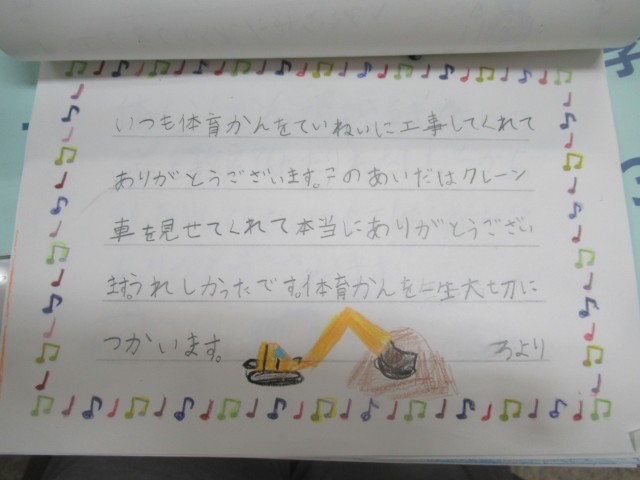 いつも体育かんをていねいに工事してくれて
ありがとうございます。このあいだはクレーン
車を見せてくれて本当にありがとうござい
ます。うれしかったです。体育かんを一生大切に
つかいます。 より